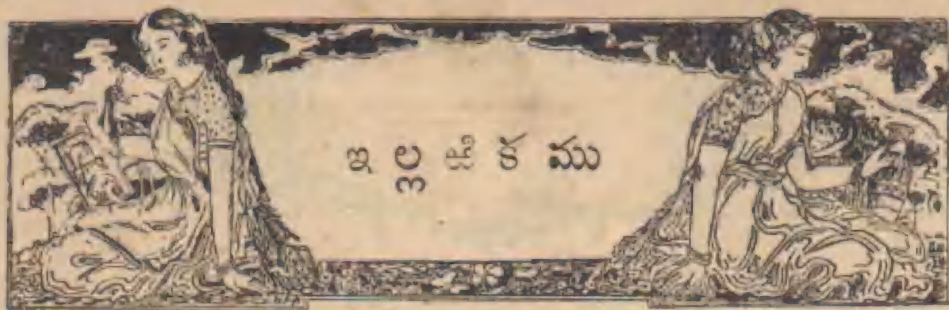 ఇల్లఱికము